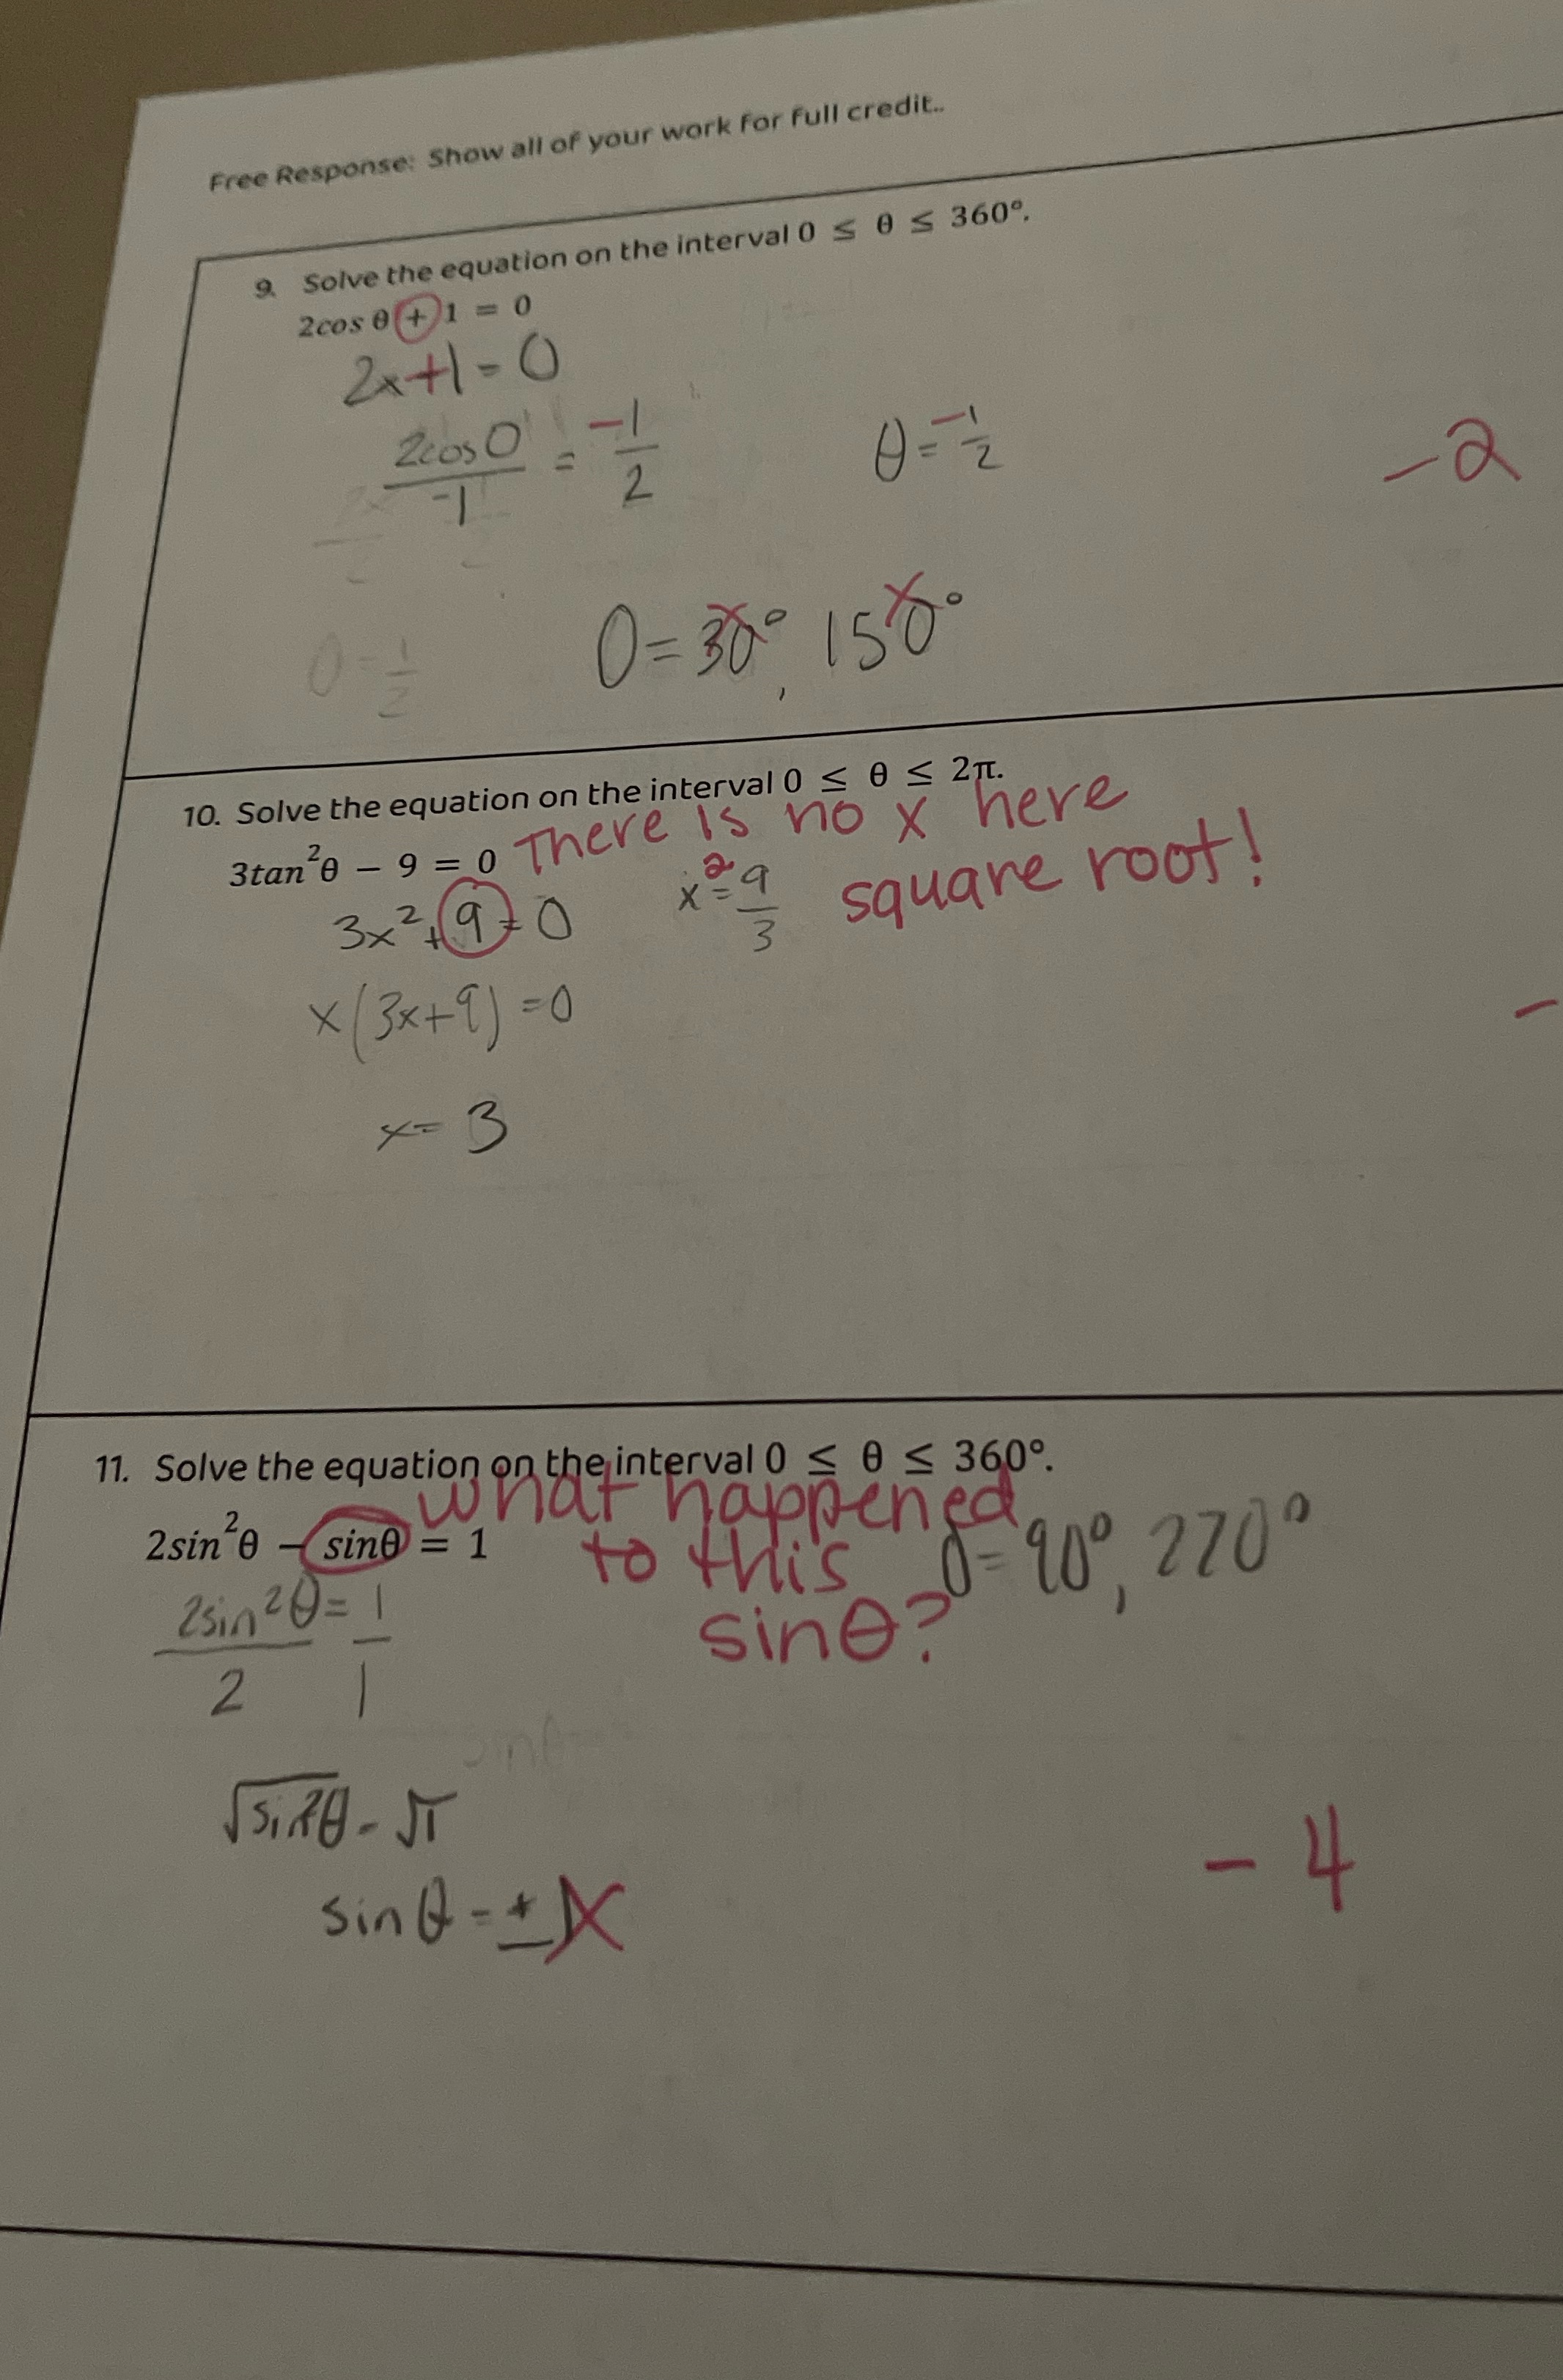 Free Response: Show all of your work for full credit..
9. Solve the equation on the interval 0 ≤ θ ≤ 360°.
2cos θ + 1 = 0
2x+1=0
2cosθ/-1 = -1/2
θ = -1/2
-2
θ=1/2
θ=30°, 150°
10. Solve the equation on the interval 0 ≤ θ ≤ 2π.
There is no x here
3tan²θ − 9 = 0
x²=9/3
square root!
3x²+9=0
x(3x+9)=0
-
x=3
11. Solve the equation on the interval 0 ≤ θ ≤ 360°.
what happened
to this
sinθ?
2sin²θ − sinθ = 1
θ=90°, 270°
2sin²θ/2 = 1/1
sinθ
√sin²θ = √1
sinθ = ±1
-4